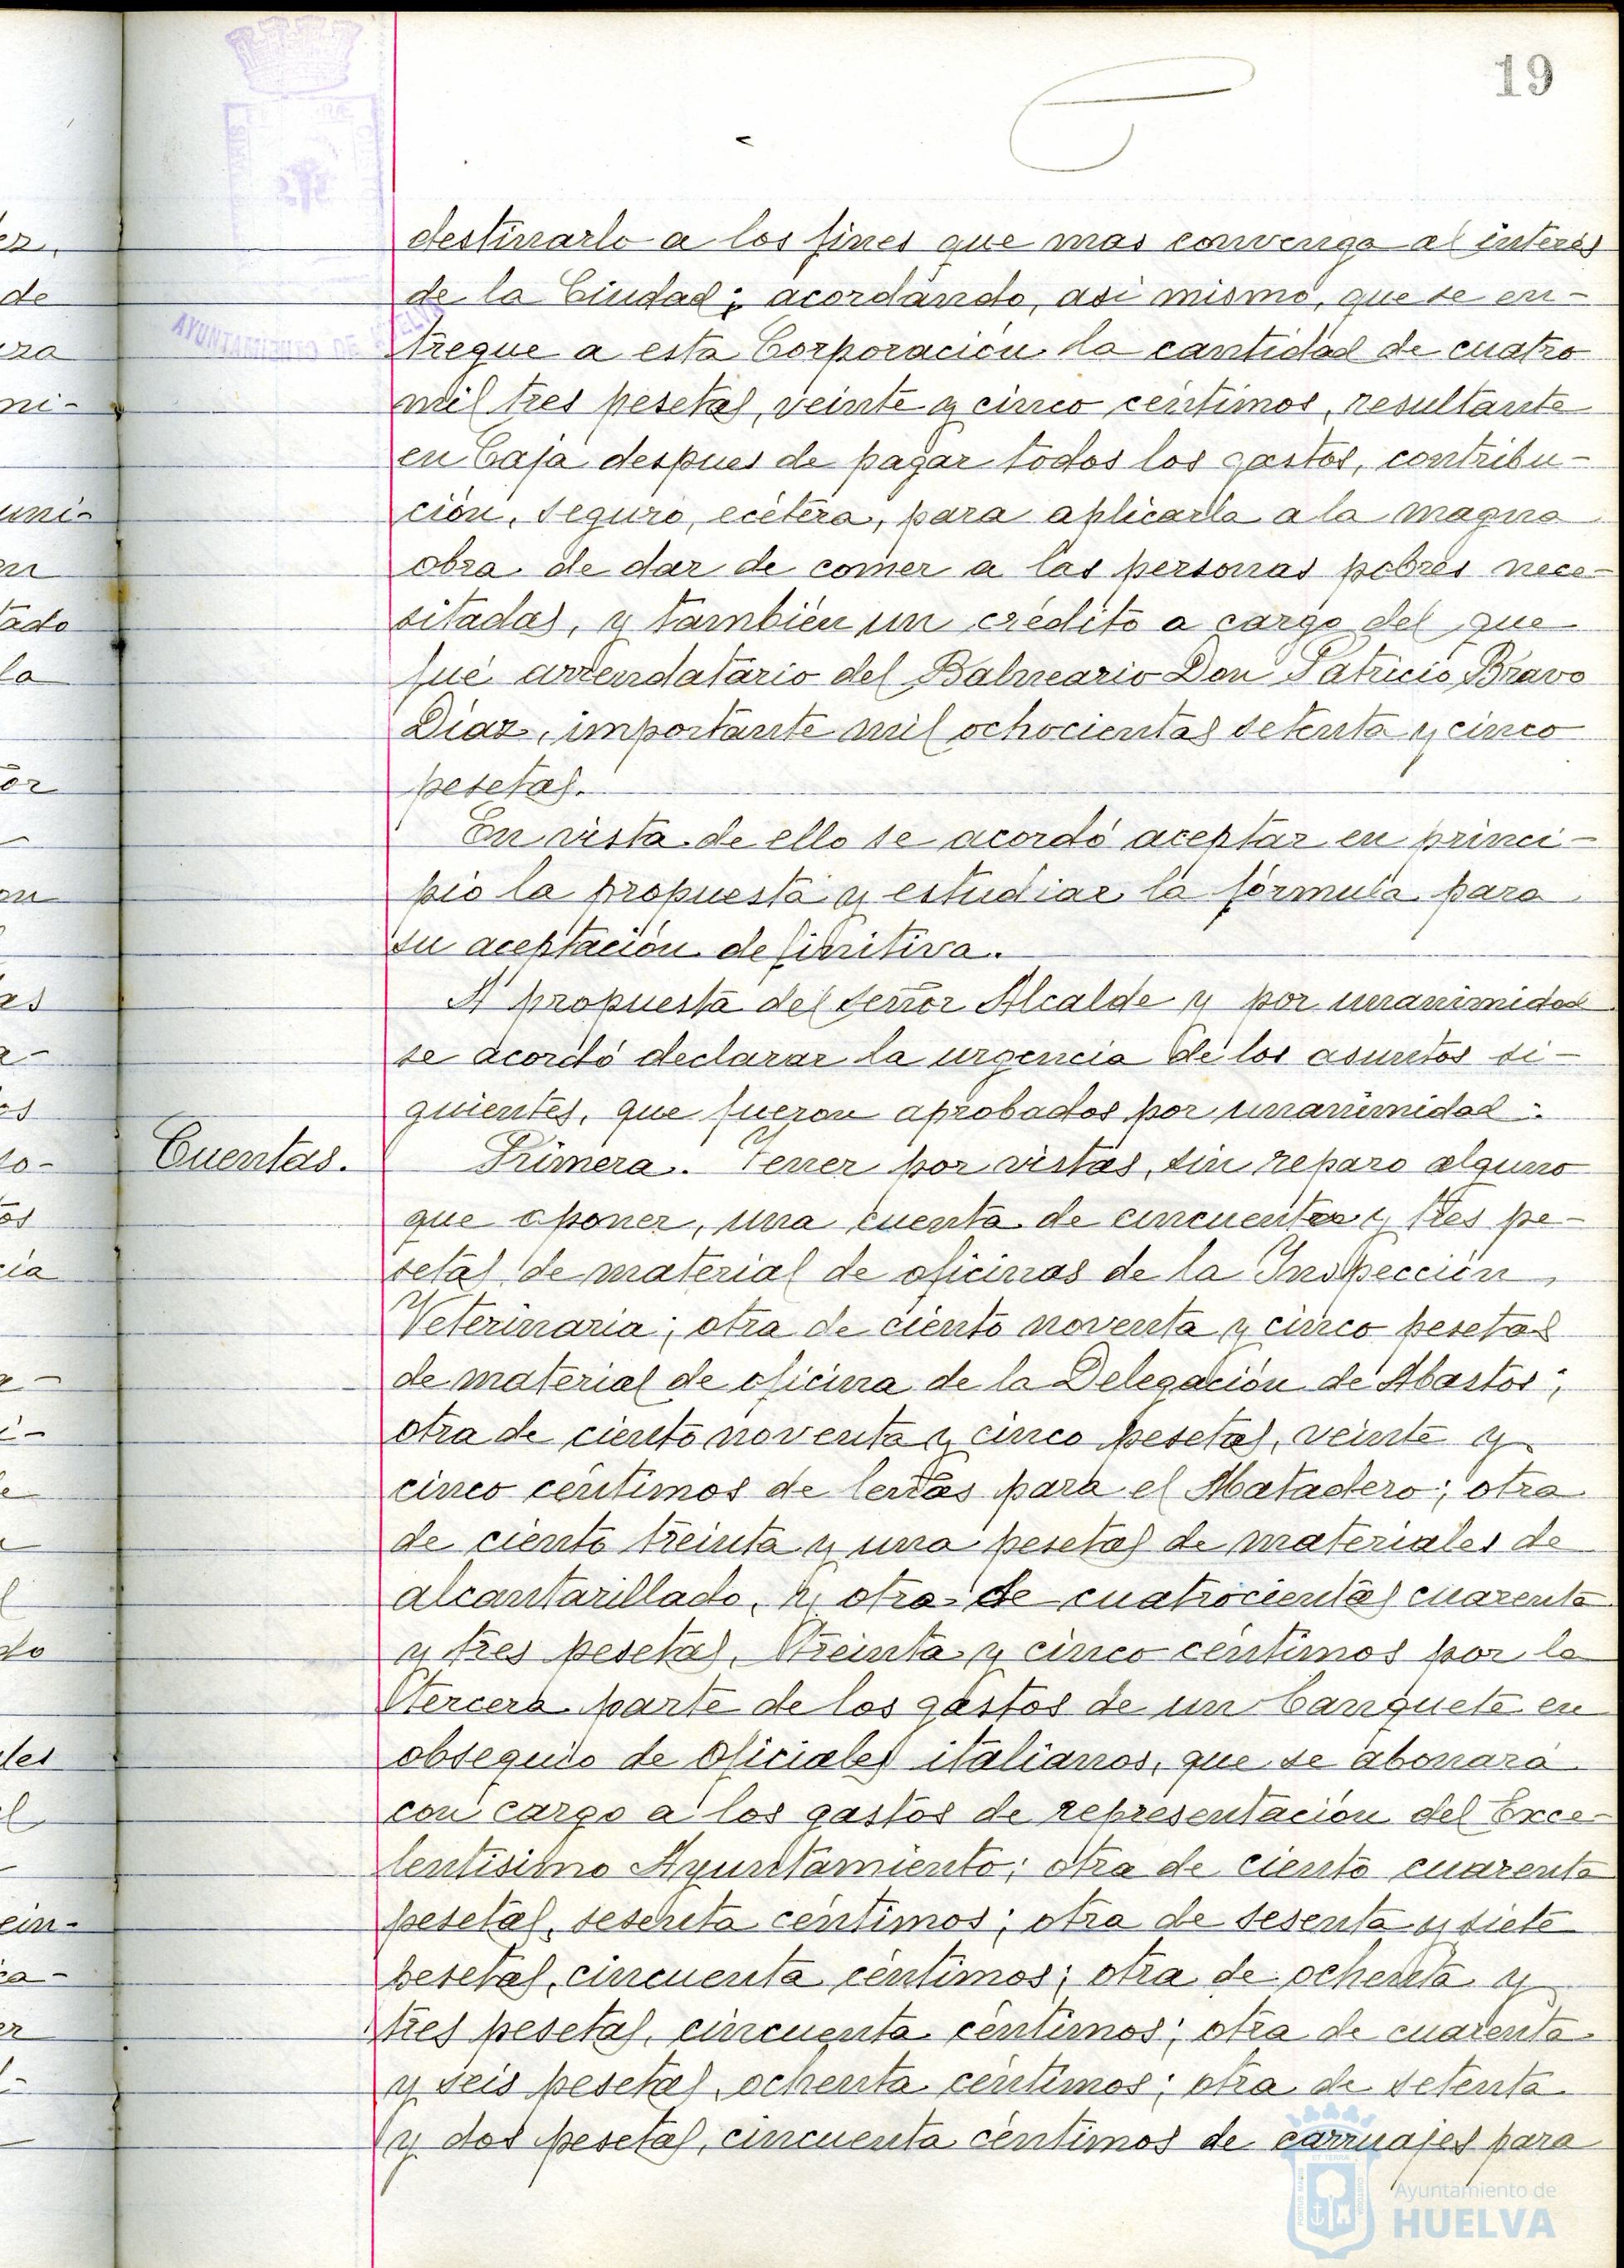 19
destinarlo a los fines que mas convenga al interés
de la Ciudad; acordándo, asi mismo, que se en-
tregue a esta Corporación la cantidad de cuatro
mil tres pesetas, veinte y cinco céntimos, resultante
en Caja despues de pagar todos los gastos, contribu-
ción, seguro, ecétera, para aplicarla a la magna
obra de dar de comer a las personas pobres nece-
sitadas, y también un crédito a cargo del que
fué arrendatario del Balneario Don Patricio Bravo
Diaz, importante mil ochocientas setenta y cinco
pesetas.
En vista de ello se acordó aceptar en princi-
pio la propuesta y estudiar la fórmula para
su aceptación definitiva.
A propuesta del señor Alcalde y por unanimidad
se acordó declarar la urgencia de los asuntos si-
guientes, que fueron aprobados por unanimidad:
Cuentas.
Primera. Tener por vistas, sin reparo alguno
que oponer, una cuenta de cincuenta y tres pe-
setas de material de oficinas de la Inspección
Veterinaria; otra de ciento noventa y cinco pesetas
de material de oficina de la Delegación de Abastos;
otra de ciento noventa y cinco pesetas, veinte y
cinco céntimos de leñas para el Matadero; otra
de ciento treinta y una pesetas de materiales de
alcantarillado, y otra de cuatrocientas cuarenta
y tres pesetas, treinta y cinco centimos por la
tercera parte de los gastos de un banquete en
obsequio de oficiales italianos, que se abonará
con cargo a los gastos de representación del Exce-
lentisimo Ayuntamiento; otra de ciento cuarenta
pesetas, sesenta céntimos; otra de sesenta y siete
pesetas, cincuenta céntimos; otra de ochenta y
tres pesetas, cincuenta céntimos; otra de cuarenta
y seis pesetas, ochenta céntimos; otra de setenta
y dos pesetas, cincuenta céntimos de carruajes para
Ayuntamiento de
HUELVA